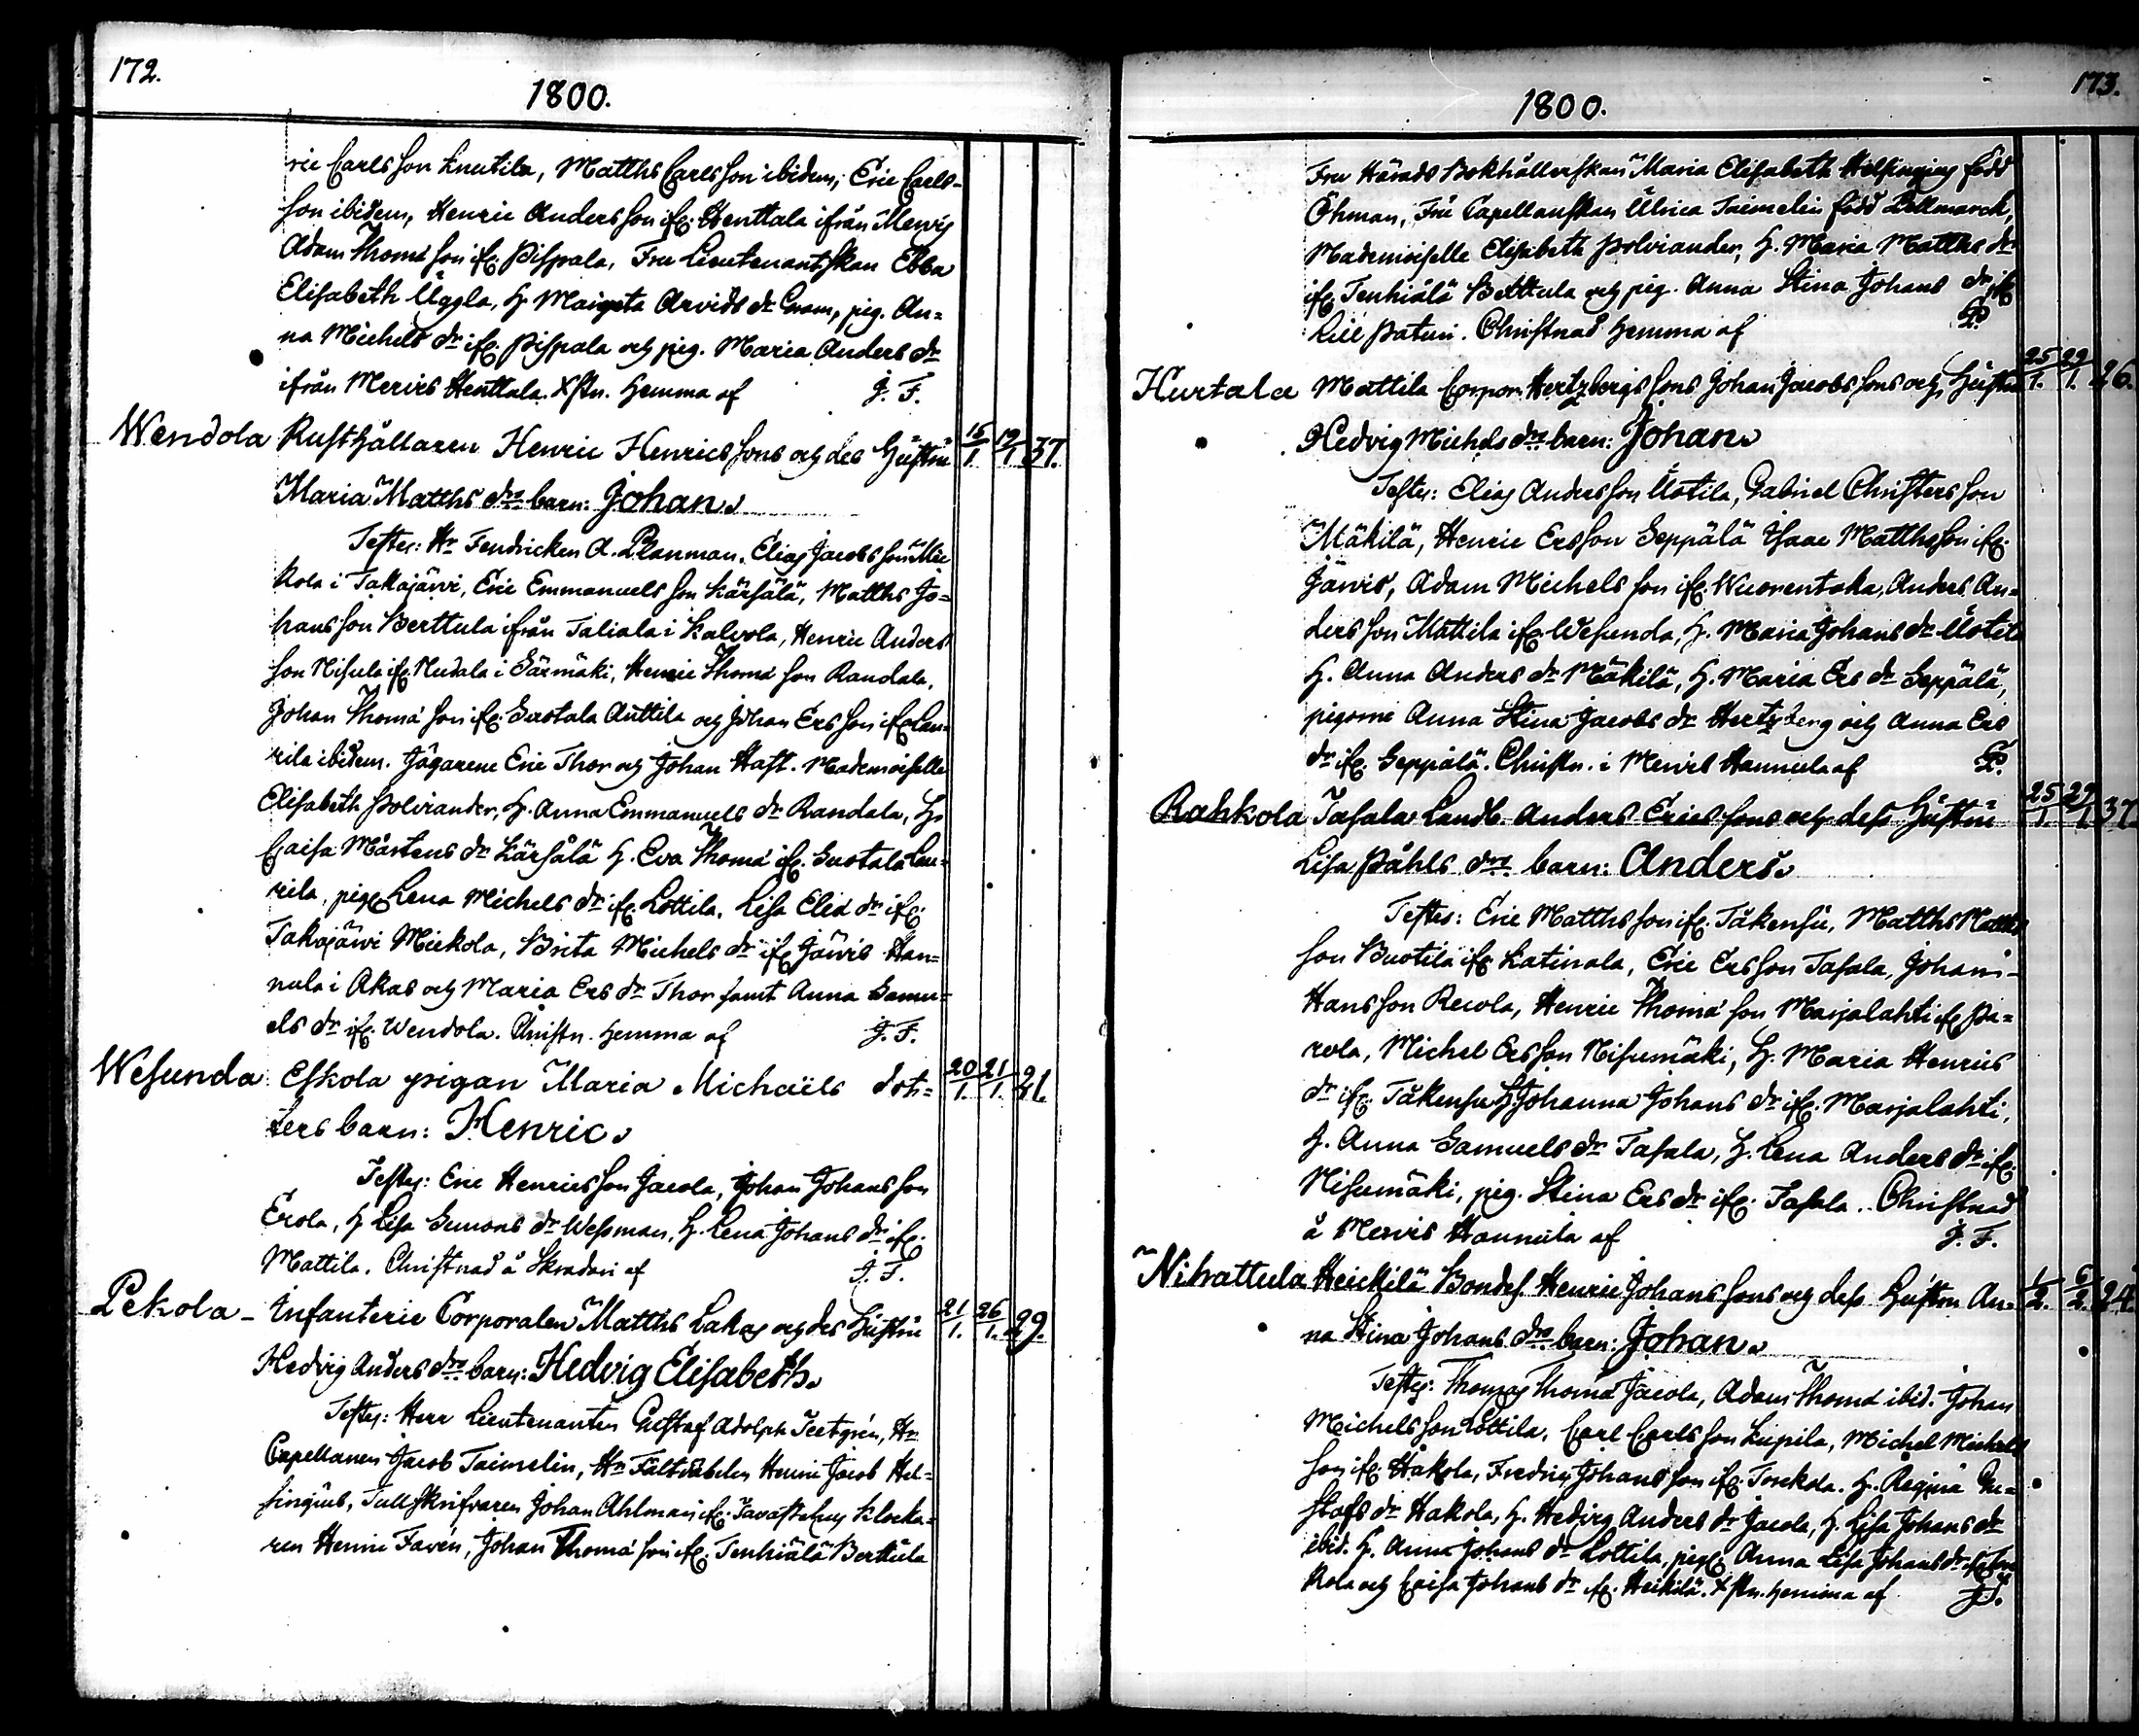 172.
1800.
ric Carlsson Knutila, Matths Carlsson ibidem, Eric Carls-
son ibidem, Henric Andersson ifr. Henttala ifrån Mervis
Adam Thomæ son ifr. Pispala, Fru Lieutenantskan Ebba
Elisabeth Uggla, H. Margeta Arvids dr Cnam, pig. An=
na Michels dr ifr. Pispala och pig. Maria Anders dr
ifrån Mervis Henttala. Xstn. hemma af J. F.
Wendola Rusthållaren Henric Henrics sons och des hustru 15/1. 19/1 37.
Maria Matths drs barn: Johan.
Testes: Hr Fendricken A. Planman, Elias Jacobsson Mic
kola i Takajärvi, Eric Emmanuels son Kärsälä, Matths Jo=
hansson Berttula ifrån Taliala i Kalvola, Henric Anders
son Nisula ifr. Nudala i Särmäki, Henric Thomæ son Randala,
Johan Thomæ son ifr. Suotala Anttila och Johan Ersson ifr. Lau=
rila ibidem. Jägarene Eric Thor och Johan Haft. Mademoiselle
Elisabeth Polviander, H. Anna Emmanuels dr Randala, H.
Caisa Mårtens dr Kärsälä H. Eva Thomæ ifr. Suotala Lau=
rila, pigr Lena Michels dr ifr. Lottila, Lisa Eliæ dr ifr.
Takajärvi Mickola, Brita Michels dr ifr Järvis Han=
nula i Akas och Maria Ers dr Thor samt Anna Samu=
els dr ifr. Wendola. Christn. hemma af J. F.
Wesunda Eskola pigan Maria Michaëls dot= 20/1. 21/1. 21.
ters barn: Henric.
Testes: Eric Henricsson Jacola, Johan Johansson
Erola, H Lisa Simons dr Wessman, H. Lena Johans dr ifr.
Mattila. Christnad å Skradari af J. F.
Pekola - Infanterie Corporalen Matths Lakas och des hustru 21/1. 26/1. 29.
Hedvig Anders drs barn: Hedvig Elisabeth.
Testes: Herr Lieutenanten Gustaf Adolph Teetgrén, Hr
Capellanen Jacob Taimelin, Hr Fältväbeln Henric Jacob Hel=
singius, Tullskrifvaren Johan Ahlman ifr. Tavastehus Klocka=
ren Henric Favén, Johan Thomæ son ifr. Tenhiälä Berttula
173.
1800.
Fru Härads Bokhållerskan Maria Elisabeth Helsingius född
Öhman, Fru Capellanskan Ulrica Taimelin född Bellmarck,
Mademoiselle Elisabeth Polviander, H. Maria Matths dr
ifr. Tenhiälä Berttula och pig. Anna Stina Johans dr ifr
Lill Paturi. Christnad hemma af P.
Hurtala Mattila Corpor. Hertzbergs sons Johan Jacobs sons och hustru 25/1. 29/1. 26.
Hedvig Michels drs barn: Johan.
Testes: Elias Andersson Uotila, Gabriel Christersson
Mäkilä, Henric Ersson Seppälä Isaac Matthsson ifr.
Järvis, Adam Michelsson ifr. Wuorentaka, Anders An=
dersson Mattila ifr Wesunda, H. Maria Johans dr Uotila
H. Anna Anders dr Mäkilä, H. Maria Ers dr Seppälä,
pigorne Anna Stina Jacobs dr Hertzberg och Anna Ers
dr ifr. Seppälä. Christn. i Mervis Hannula af P.
Rahkola Tasala Landb. Anders Erics sons och dess hustru 25/1. 29/1. 37.
Lisa Påhls drs barn: Anders.
Testes: Eric Matthsson ifr. Täkensu, Matths Matths
son Buotila ifr Katinala, Eric Ersson Tasala, Johan
Hansson Recola, Henric Thomæ son Marjalahti ifr Pa=
rola, Michel Ersson Nisumäki, H. Maria Henrics
dr ifr. Täkensu H Johanna Johans dr ifr. Marjalahti,
H. Anna Samuels dr Tasala, H. Lena Anders dr ifr.
Nisumäki, pig. Stina Ers dr ifr. Tasala. Christnad
å Mervis Hannula af J. F.
Nihattula Heickilä Bondes. Henric Johans sons och dess hustru An= 1/2. 6/2. 24.
na Stina Johans drs barn: Johan.
Testes: Thomas Thomæ Jacola, Adam Thomæ ibid. Johan
Michelsson Lottila, Carl Carlsson Kupila, Michel Michels
son ifr. Hakola, Fredric Johansson ifr. Torckola. H. Regina Gu=
stafs dr Hakola, H. Hedvig Anders dr Jacola, H. Lisa Johans dr
ibid. H. Anna Johans dr Lottila, pigr Anna Lisa Johans dr ifr Tor
kola och Caisa Johans dr ifr. Heikilä. Xstn. hemma af J. F.